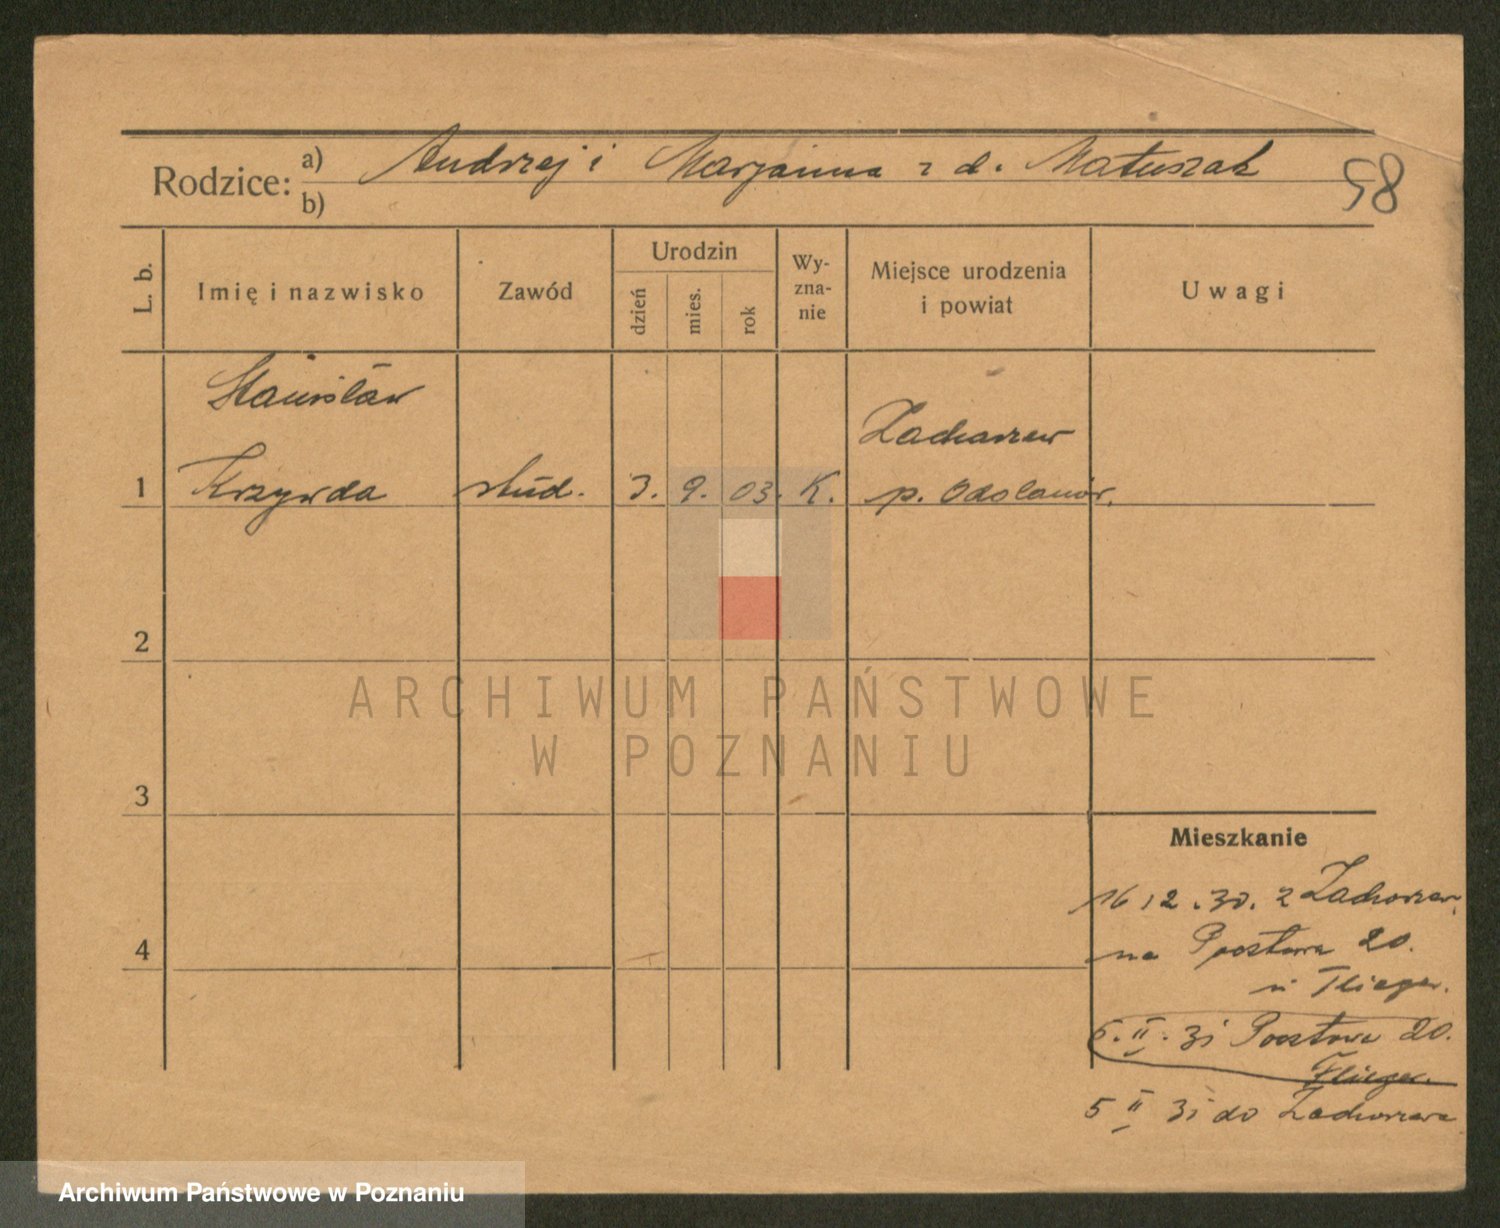 Rodzice: a) Andrzej i Marjanna z d. Matuszak
b)
58
L. b.
Imię i nazwisko
Zawód
Urodzin
dzień
mies.
rok
Wy-
zna-
nie
Miejsce urodzenia
i powiat
Uwagi
Stanisław
Zacharzew
1 Krzywda stud. 3. 9. 03. K. p. Odolanów.
2
ARCHIWUM PAŃSTWOWE
W POZNANIU
3
Mieszkanie
16 12. 30. z Zacharzew.
4
na Pocztowa 20.
u Flieger.
5. II. 31 Pocztowa 20.
Flieger.
5 II 31 do Zacharzewa
Archiwum Państwowe w Poznaniu